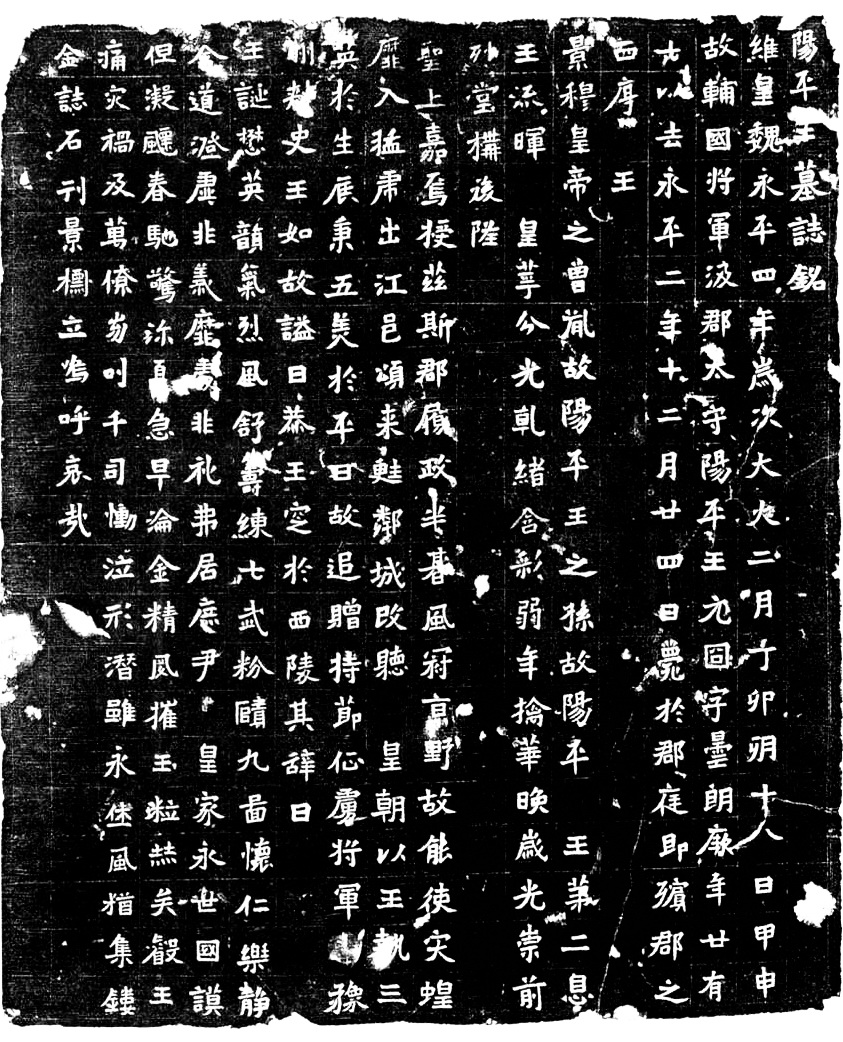 陽平王墓誌銘
維皇魏永平四年歲次大火二月丁卯朔十八日甲申
故輔國將軍汲郡太守陽平王元囧字曇朗厥年廿有
六以去永平二年十二月廿四日薨於郡庭即殯郡之
西序王
景穆皇帝之曾胤故陽平王之孫故陽平王第二息
王流暉皇萼分光軋緒含彩弱年摛華晚歲光崇前
列堂構後陛
聖上嘉焉授茲斯郡履政半朞風冠高野故能使灾蝗
靡入猛虎出江邑頌来鮭鄰城改聽皇朝以王執三
英於生辰秉五美於平日故追贈持節征虜將軍豫
州刺史王如故謚曰恭王窆於西陵其辭曰
王誕懋英韻氣烈風舒籌練七武粉賾九啚懷仁樂静
令道澄虛非義靡集非礼弗居庶尹皇家永世國謨
但凝飂春馳驚淰夏急早淪金精夙摧玉粒烋矣叡王
痛灾禍及萬僚崩叫千司慟泣形潛雖永隹風猶集鏤
金誌石刊景標立嗚呼哀哉